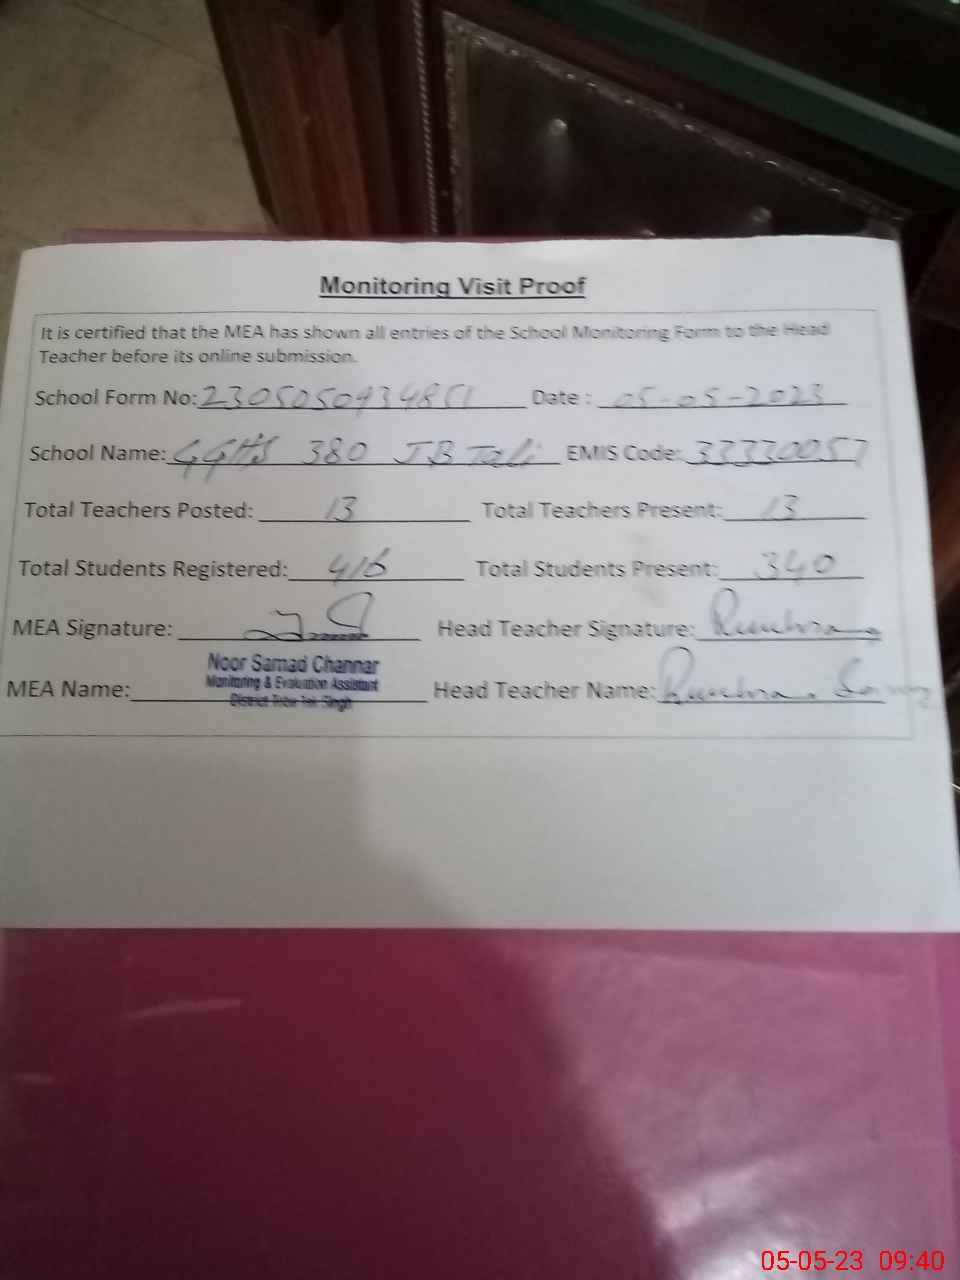 Monitoring Visit Proof
It is certified that the MEA has shown all entries of the School Monitoring Form to the Head
Teacher before its online submission.
School Form No: 2305050934851 Date : 05-05-2023
School Name: GGHS 380 JB Tali EMIS Code: 33330057
Total Teachers Posted: 13 Total Teachers Present: 13
Total Students Registered: 416 Total Students Present: 340
MEA Signature: Head Teacher Signature:
Noor Samad Channar
Monitoring & Evaluation Assistant
MEA Name: Head Teacher Name:
District Toba Tek Singh
05-05-23 09:40